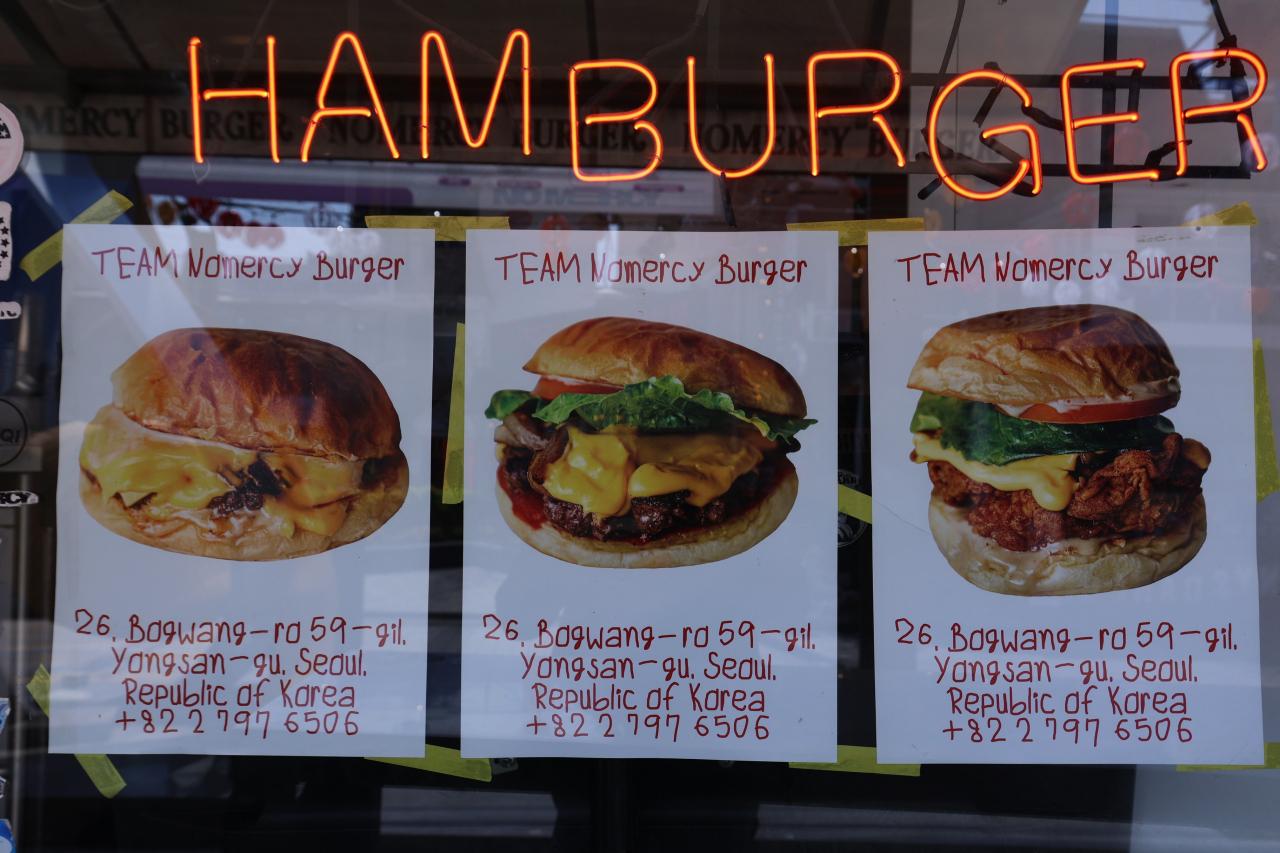 HAMBURGER
MERCY BURGER NOMERCY BURGER NOMERCY BURGER
NO MERCY
TEAM Nomercy Burger
26, Bogwang-ro 59-gil,
Yongsan-gu, Seoul,
Republic of Korea
+82 2 797 6506
TEAM Nomercy Burger
26, Bogwang-ro 59-gil,
Yongsan-gu, Seoul,
Republic of Korea
+82 2 797 6506
TEAM Nomercy Burger
26, Bogwang-ro 59-gil,
Yongsan-gu, Seoul,
Republic of Korea
+82 2 797 6506